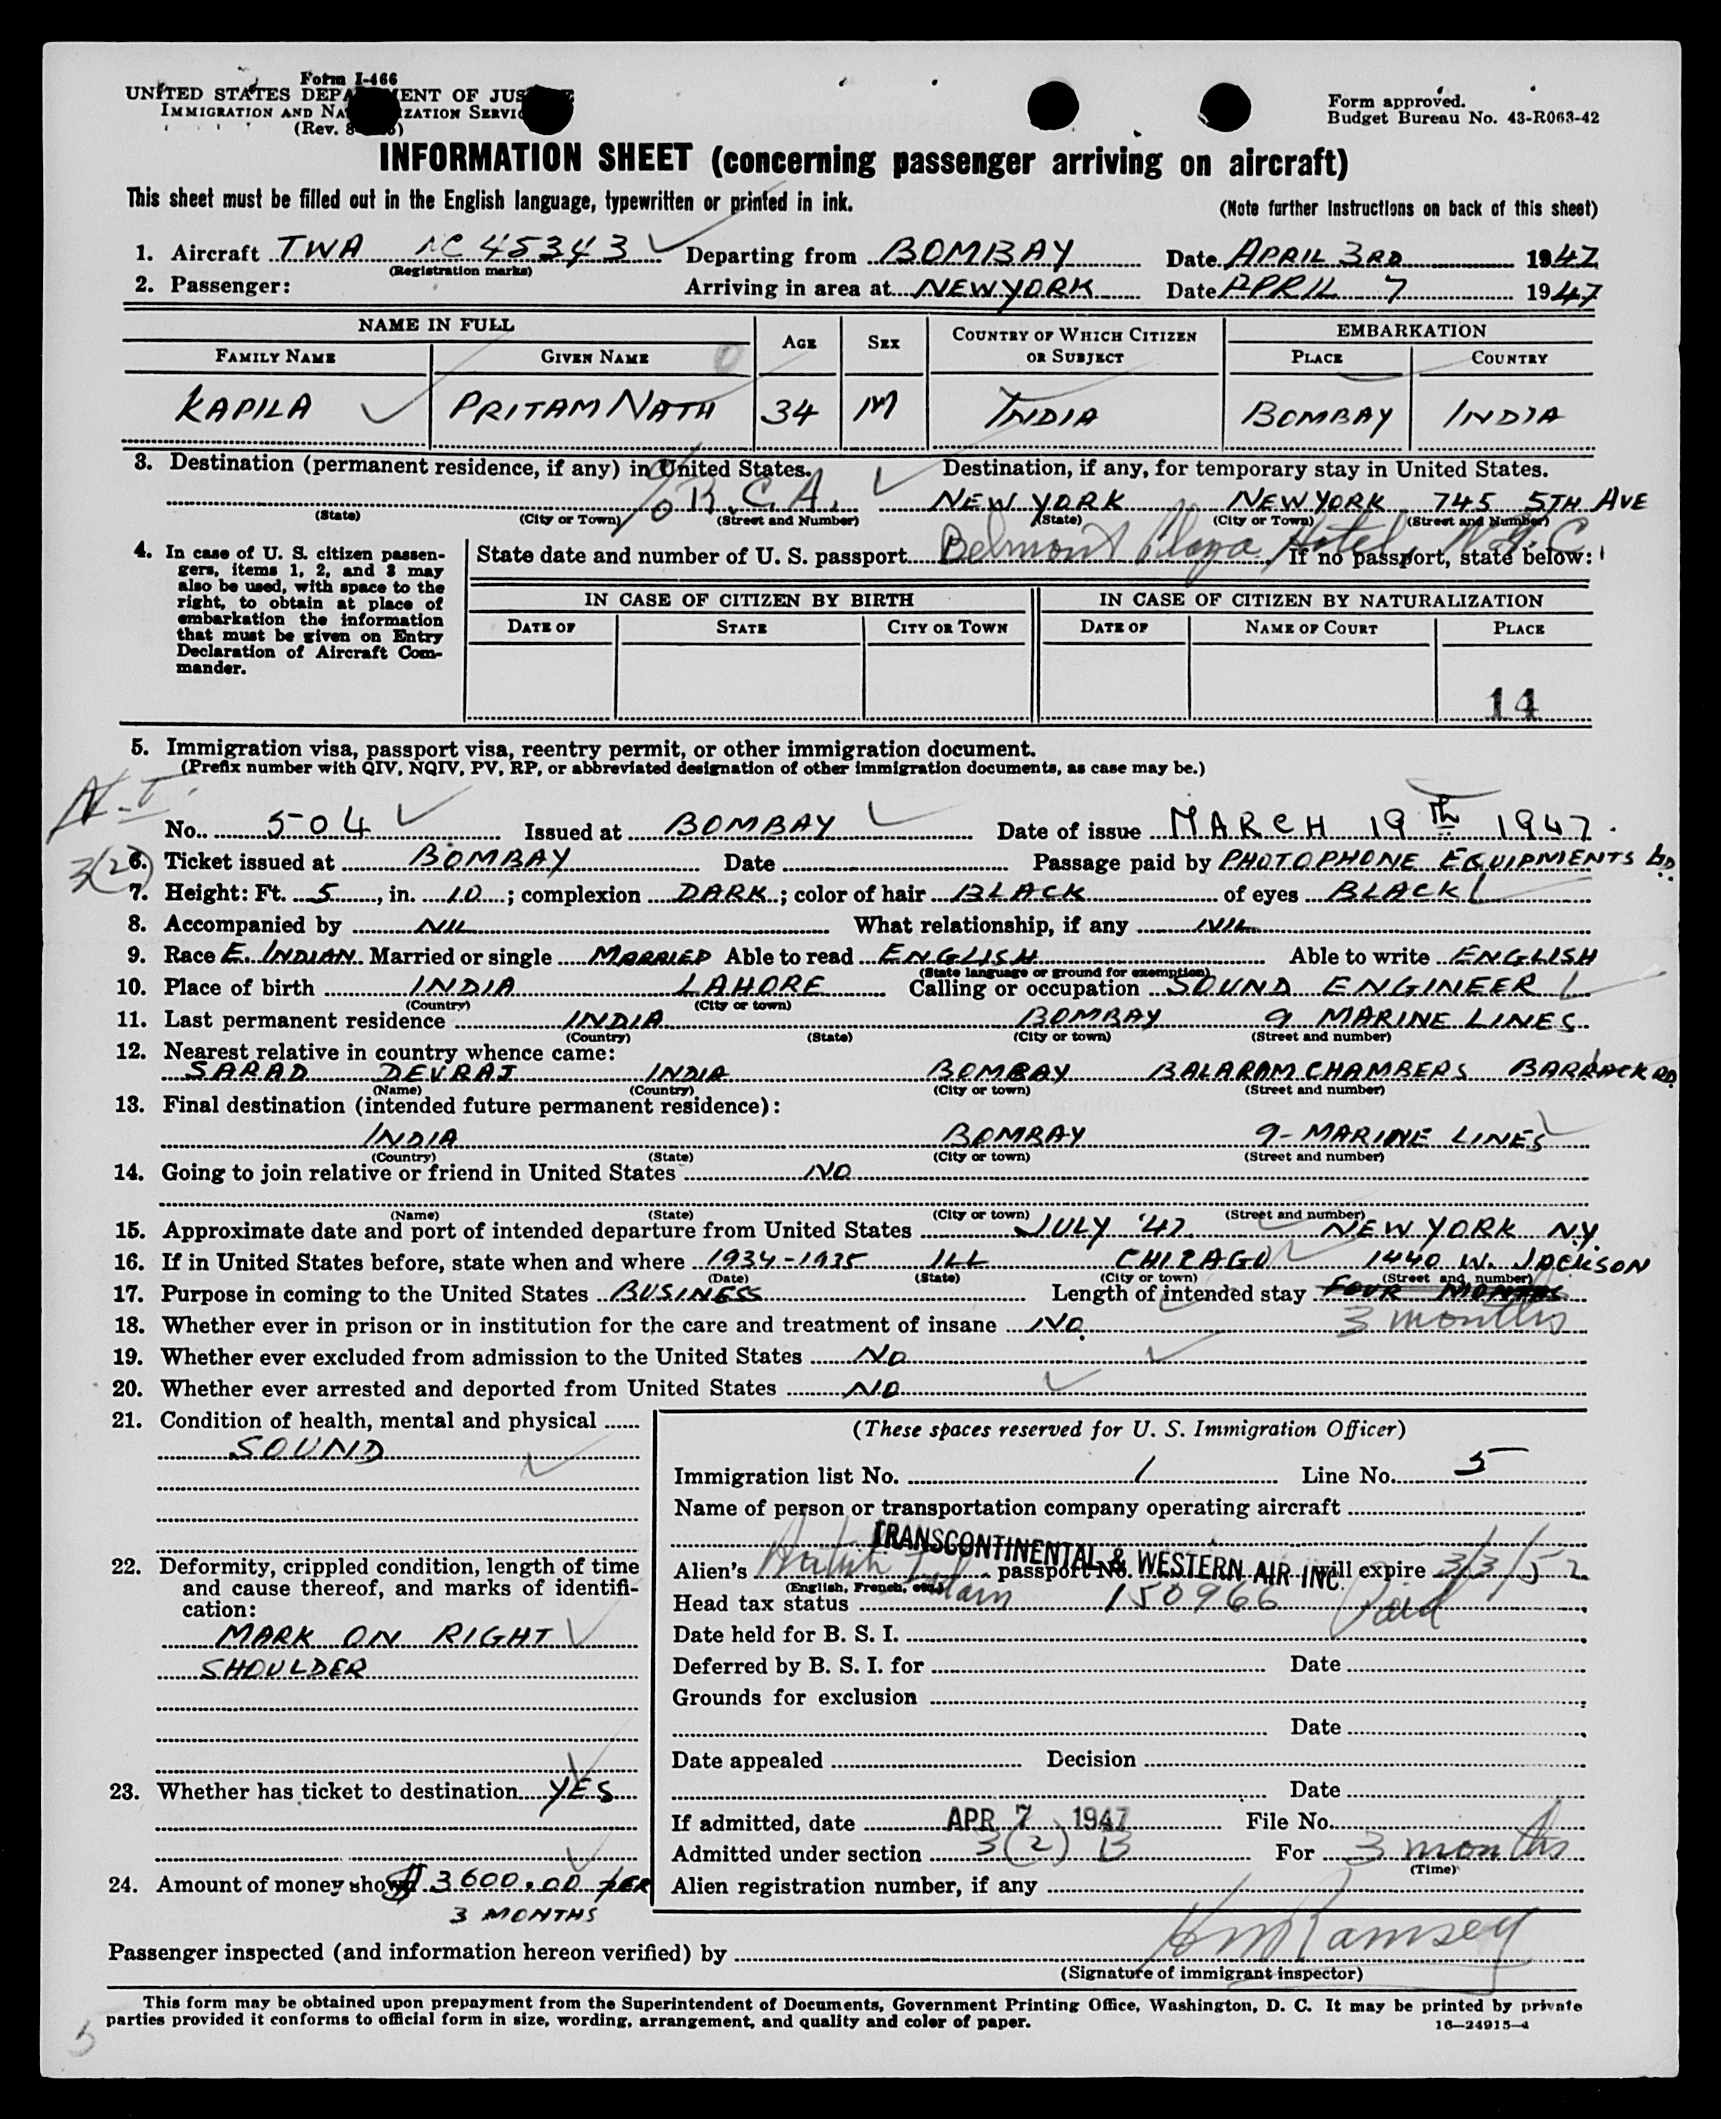 Form I-466
UNITED STATES DEPARTMENT OF JUSTICE
IMMIGRATION AND NATURALIZATION SERVICE
(Rev.
Form approved.
Budget Bureau No. 43-R063-42
INFORMATION SHEET (concerning passenger arriving on aircraft)
This sheet must be filled out in the English language, typewritten or printed in ink.
(Note further instructions on back of this sheet)
1. Aircraft TWA NC 45343 Departing from BOMBAY Date APRIL 3RD 1947
(Registration marks)
2. Passenger: Arriving in area at NEW YORK Date APRIL 7 1947
NAME IN FULL AGE SEX COUNTRY OF WHICH CITIZEN OR SUBJECT EMBARKATION
FAMILY NAME GIVEN NAME PLACE COUNTRY
KAPILA PRITAM NATH 34 M INDIA BOMBAY INDIA
3. Destination (permanent residence, if any) in United States. Destination, if any, for temporary stay in United States.
c/o R.C.A. NEW YORK NEW YORK 745 5TH AVE
(State) (City or Town) (Street and Number) (State) (City or Town) (Street and Number)
Belmont Plaza Hotel, N.Y.C.
4. In case of U. S. citizen passengers, items 1, 2, and 3 may also be used, with space to the right, to obtain at place of embarkation the information that must be given on Entry Declaration of Aircraft Commander.
State date and number of U. S. passport If no passport, state below:
IN CASE OF CITIZEN BY BIRTH IN CASE OF CITIZEN BY NATURALIZATION
DATE OF STATE CITY OR TOWN DATE OF NAME OF COURT PLACE
14
5. Immigration visa, passport visa, reentry permit, or other immigration document.
(Prefix number with QIV, NQIV, PV, RP, or abbreviated designation of other immigration documents, as case may be.)
No. 504 Issued at BOMBAY Date of issue MARCH 19th 1947.
3(2)
6. Ticket issued at BOMBAY Date Passage paid by PHOTOPHONE EQUIPMENTS LD.
7. Height: Ft. 5, in. 10; complexion DARK; color of hair BLACK of eyes BLACK
8. Accompanied by NIL What relationship, if any NIL
9. Race E. INDIAN Married or single MARRIED Able to read ENGLISH Able to write ENGLISH
(State language or ground for exemption)
10. Place of birth INDIA LAHORE Calling or occupation SOUND ENGINEER
(Country) (City or town)
11. Last permanent residence INDIA BOMBAY 9 MARINE LINES
(Country) (State) (City or town) (Street and number)
12. Nearest relative in country whence came:
SARAD DEVRAJ INDIA BOMBAY BALARAM CHAMBERS BARRACK RD.
(Name) (Country) (City or town) (Street and number)
13. Final destination (intended future permanent residence):
INDIA BOMBAY 9-MARINE LINES
(Country) (State) (City or town) (Street and number)
14. Going to join relative or friend in United States NO
(Name) (State) (City or town) (Street and number)
15. Approximate date and port of intended departure from United States JULY '47 NEW YORK N.Y.
16. If in United States before, state when and where 1934-1935 ILL CHICAGO 1440 W. JACKSON
(Date) (State) (City or town) (Street and number)
17. Purpose in coming to the United States BUSINESS Length of intended stay FOUR MONTHS
3 months
18. Whether ever in prison or in institution for the care and treatment of insane NO
19. Whether ever excluded from admission to the United States NO
20. Whether ever arrested and deported from United States NO
21. Condition of health, mental and physical
SOUND
22. Deformity, crippled condition, length of time and cause thereof, and marks of identification:
MARK ON RIGHT
SHOULDER
23. Whether has ticket to destination YES
24. Amount of money shown $3600.00 PER
3 MONTHS
(These spaces reserved for U. S. Immigration Officer)
Immigration list No. 1 Line No. 5
Name of person or transportation company operating aircraft
TRANSCONTINENTAL & WESTERN AIR INC.
Alien's passport No. will expire 3/3/52
(English, French, etc.)
Head tax status 150966 Paid
Date held for B. S. I.
Deferred by B. S. I. for Date
Grounds for exclusion
Date
Date appealed Decision
Date
If admitted, date APR 7 1947 File No.
Admitted under section 3(2) B For 3 months
(Time)
Alien registration number, if any
Passenger inspected (and information hereon verified) by Ramsey
(Signature of immigrant inspector)
This form may be obtained upon prepayment from the Superintendent of Documents, Government Printing Office, Washington, D. C. It may be printed by private
parties provided it conforms to official form in size, wording, arrangement, and quality and color of paper.
16—24915-4
5